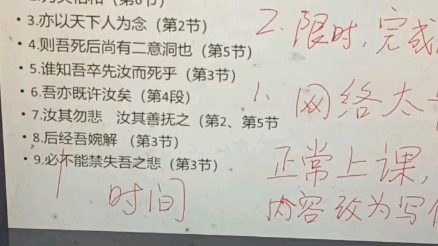 •3.亦以天下人为念（第2节）
•4.则吾死后尚有二意洞也（第5节）
•5.谁知吾卒先汝而死乎（第3节）
•6.吾亦既许汝矣（第4段）
•7.汝其勿悲 汝其善抚之（第2、第5节
•8.后经吾婉解 （第3节）
•9.必不能禁失吾之悲（第3节）
时间
2.限时,完成
1.网络大
正常上课,
内容改为写作